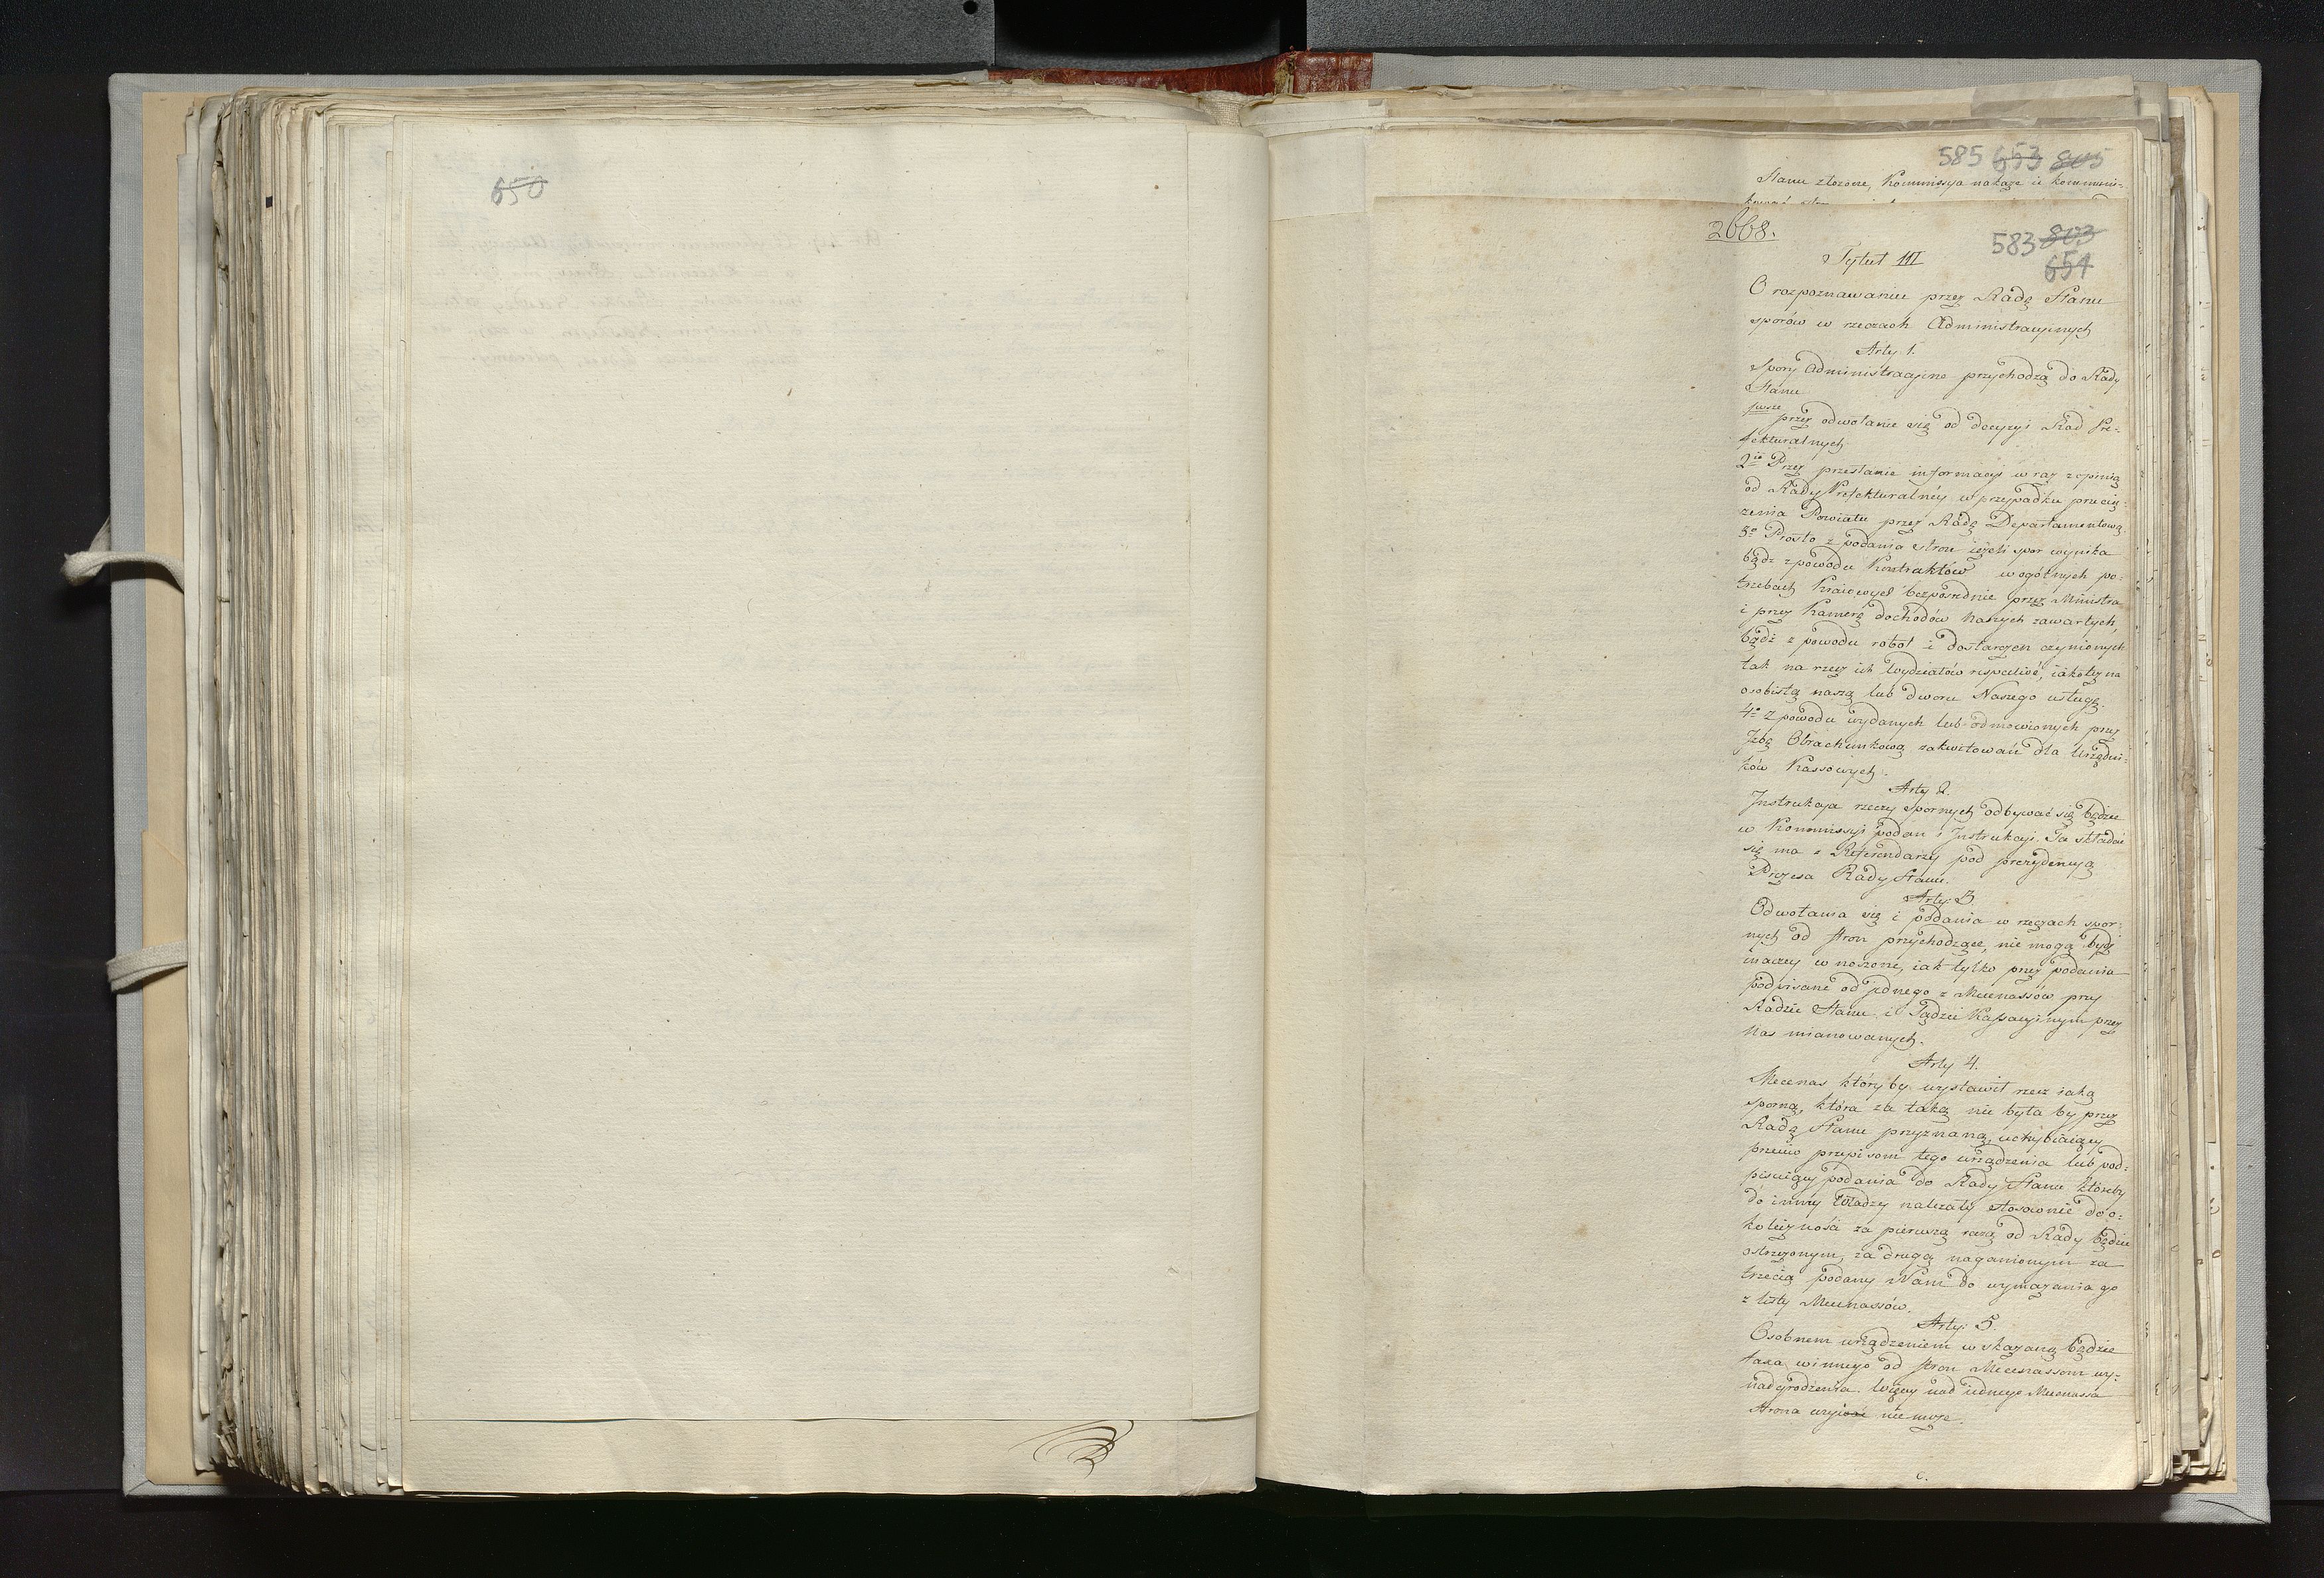 650
585 653 805
Stanu złożone, Kommissya nakaże ie kommuni-
2668.
583 803
654
Tytuł III
O rozpoznawaniu przez Radę Stanu
sporów w rzeczach Administracyinych
Arty 1.
Spory Administracyine przychodzą do Rady
Stanu
przez odwołanie się od decyzyi Rad Pre-
fekturalnych
2ie Przez przesłanie informacyi wraz z opinią
od Rady Prefekturalnéy w przypadku przecią-
żenia Powiatu przez Radę Departamentową.
3o Prosto z podania stron ieżeli spor wynika
bądź z powodu Kontraktów w ogólnych po-
trzebach Kraiowych bezpośrednie przez Ministra
i przez Kamerę dochodów Naszych zawartych,
bądź z powodu robot i dostarczeń czynionych
tak na rzecz ich Wydziałów respective, iakoteż na
osobistą naszą lub dworu Naszego usługę.
4o Z powodu wydanych lub odmowionych przez
Izbę Obrachunkową zakwitowań dla Urzędni-
ków Kassowych.
Arty 2.
Instrukcya rzeczy spornych odbywać się będzie
w Kommissyi podań i Instrukcyi. Ta składać
się ma z Referendarzy pod prezydencyą
Prezesa Rady Stanu.
Arty: 3.
Odwołania się i podania w rzeczach spor-
nych od stron przychodzące, nie mogą bydź
inaczey wnoszone, iak tylko przez podania
podpisane od jednego z Mecenassów przy
Radzie Stanu i Sądzie Kassacyinym przez
Nas mianowanych.
Arty 4.
Mecenas który by wystawił rzecz iaką
sporną, która za taką nie była by przez
Radę Stanu przyznaną, uchybiaiący
przeciw przepisom tego urządzenia lub pod-
pisuiący podania do Rady Stanu któreby
do inney Władzy należały stosownie do o-
koliczności za pierwszą razą od Rady będzie
ostrzeżonym, za drugą naganionym za
trzecią podany Nam do wymazania go
z listy Mecenassów.
Arty: 5.
Osobnem urządzeniem wskazaną będzie
taxa winnego od stron Mecenassom wy-
nadgrodzenia. Więcey nad iednego Mecenassa
Strona nie może.
c.